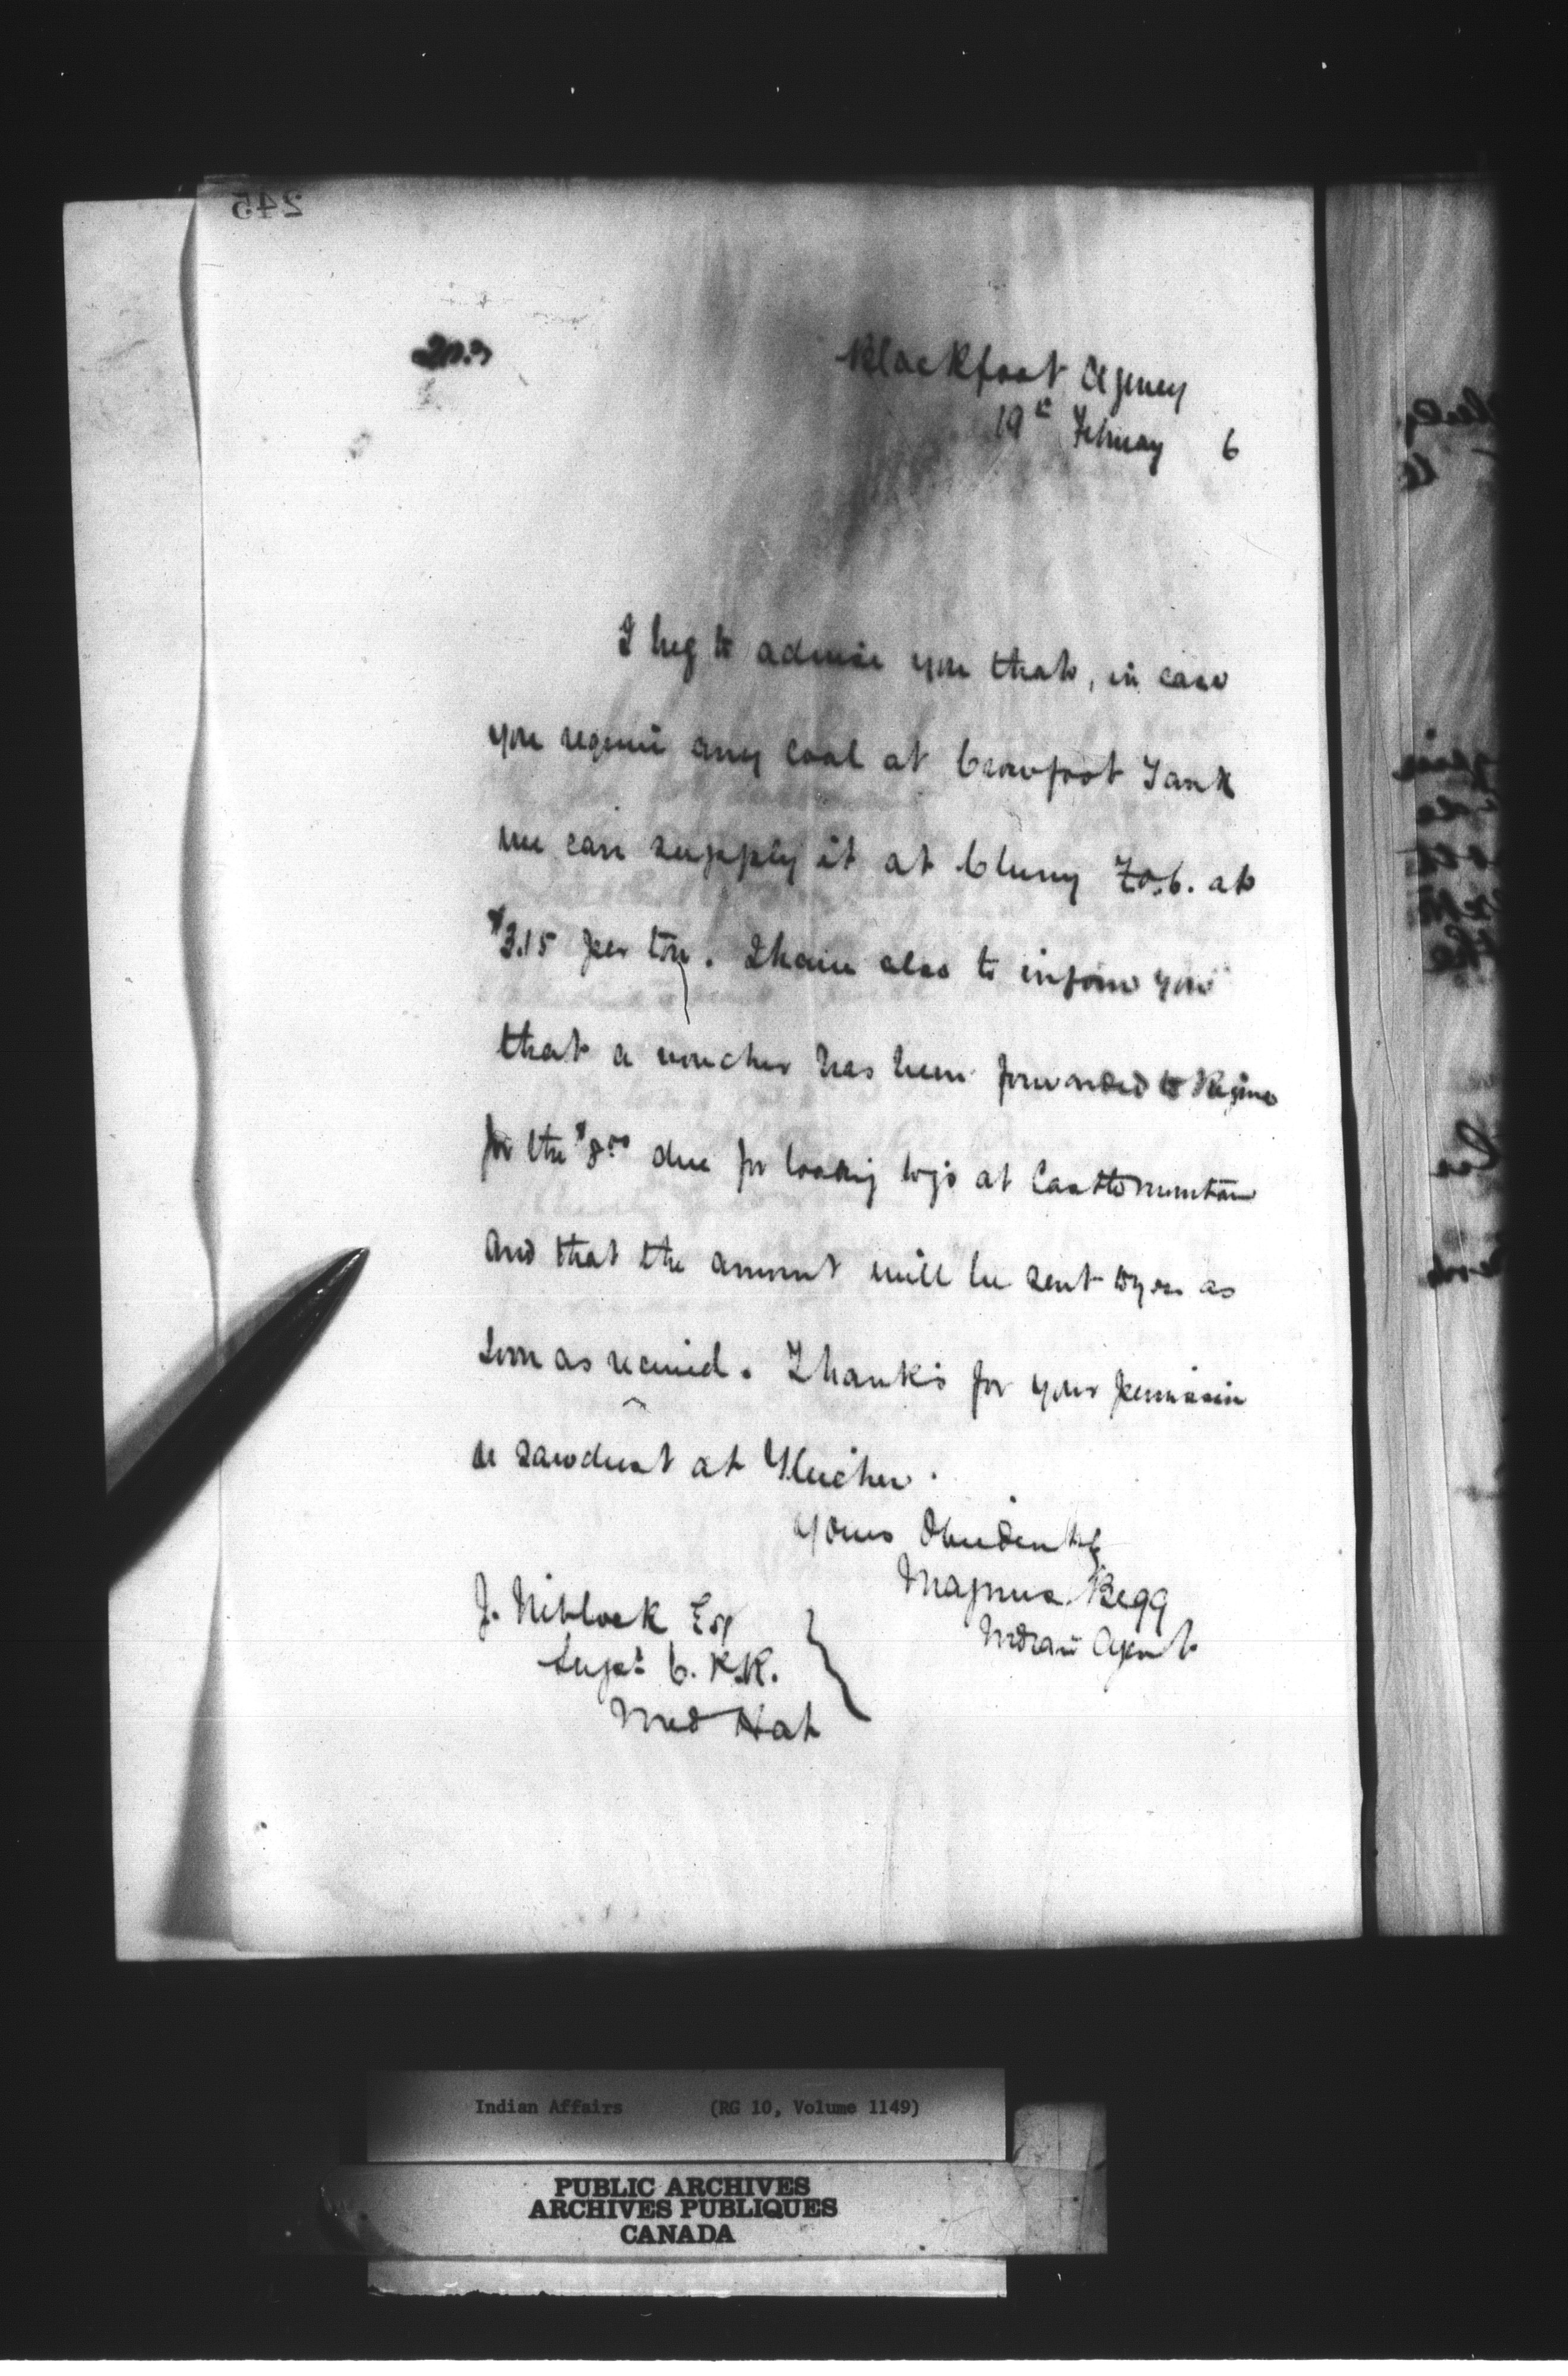 245
Blackfoot Agency
19th February 6
I beg to advise you that, in case
you require any coal at Crowfoot Tank
we can supply it at Cluny F.O.B. at
$3.15 per ton. I have also to inform you
that a voucher has been forwarded to Regina
for the $8.00 due for loading logs at Castle mountain
and that the amount will be sent to you as
soon as received. Thanks for your permission
re sawdust at Gleichen.
Yours Obediently
Magnus Begg
Indian Agent
J. Niblock Esq
Supt C.P.R.
Med Hat
Indian Affairs (RG 10, Volume 1149)
PUBLIC ARCHIVES
ARCHIVES PUBLIQUES
CANADA